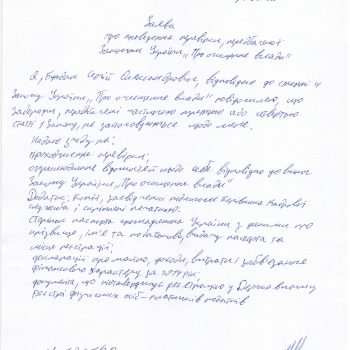 Заява
про проведення перевірки, передбаченої
Законом України „Про очищення влади"
Я, Сергій Олександрович, відповідно до статті 4
Закону України „Про очищення влади" повідомляю, що
заборони, передбачені частиною третьою або четвертою
статті 1 Закону, не застосовуються щодо мене.
Надаю згоду на:
проходження перевірки;
оприлюднення відомостей щодо себе відповідно до вимог
Закону України „Про очищення влади"
Додаток: Копії, засвідчені підписом керівника кадрової
служби і скріплені печаткою:
сторінок паспорта громадянина України з даними про
прізвище, ім'я та по батькові, видачу паспорта та
місце реєстрації;
декларації про майно, доходи, витрати і зобов'язання
фінансового характеру за 2014 рік;
документа, що підтверджує реєстрацію у Державному
реєстрі фізичних осіб – платників податків